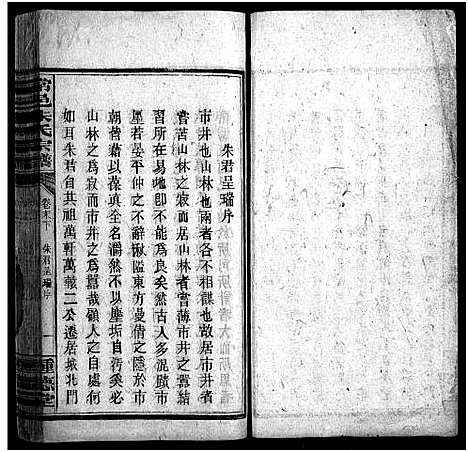 朱君呈瑞序
市井也山林也兩者各不相謀也故居市井者
嘗苦山林之寂而居山林者嘗薄市井之囂結
習所在易地卽不能爲良矣然古人多混蹟市
廛若晏平仲之不辭湫隘東方曼倩之隱於市
朝皆藉以葆眞全名濶然不以塵垢自汚奚必
山林之爲寂而市井之爲囂哉顧人之自處何
如耳朱君自共祖萬軒萬載二公遷居揪北門
朱氏宗譜
卷末下
朱君呈瑞序
一
種德堂